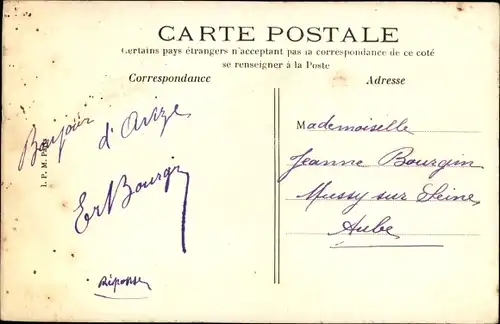 CARTE POSTALE
Certains pays étrangers n'acceptant pas la correspondance de ce coté
se renseigner à la Poste
Correspondance
Adresse
Bonjour
d'Avize
Mademoiselle
Jeanne Bourgin
Mussy sur Seine
Aube
Réponse